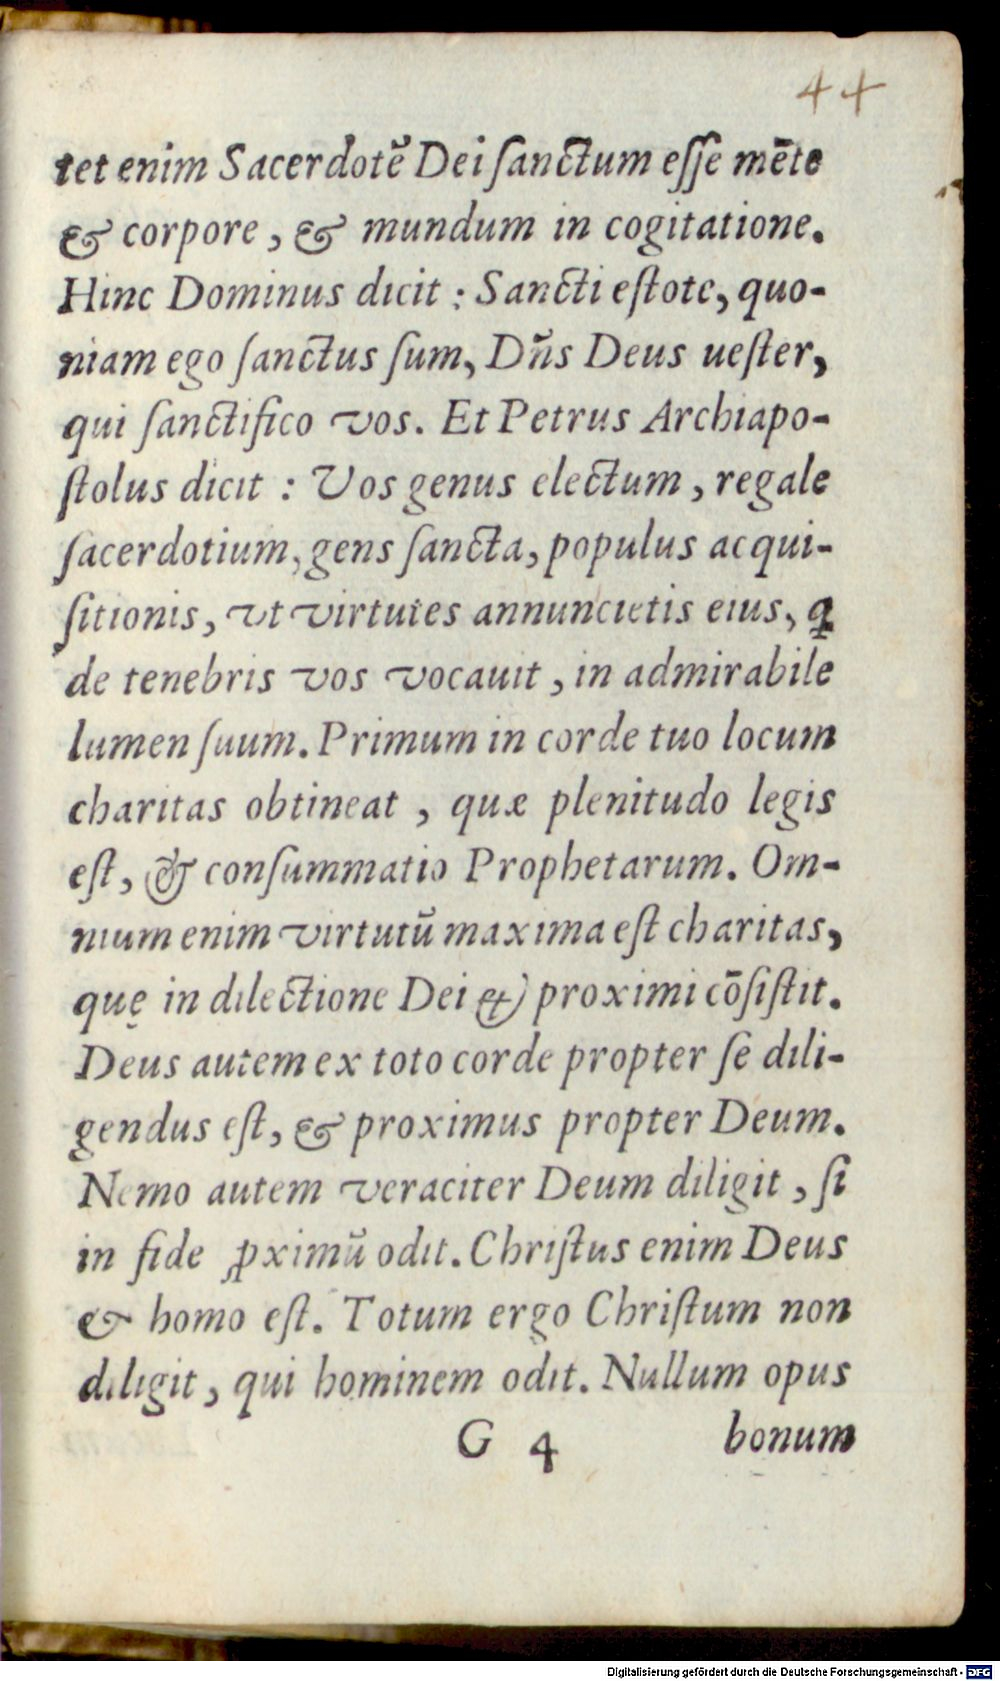 44
tet enim Sacerdotē Dei ſanctum eſſe mēte
& corpore, & mundum in cogitatione.
Hinc Dominus dicit: Sancti eſtote, quo-
niam ego ſanctus ſum, Dn̄s Deus ueſter,
qui ſanctifico vos. Et Petrus Archiapo-
ſtolus dicit: Vos genus electum, regale
ſacerdotium, gens ſancta, populus acqui-
ſitionis, vt virtutes annuncietis eius, ꝗ
de tenebris vos vocauit, in admirabile
lumen ſuum. Primum in corde tuo locum
charitas obtineat, quæ plenitudo legis
eſt, & conſummatio Prophetarum. Om-
nium enim virtutū maxima eſt charitas,
quę in dilectione Dei & proximi cōſiſtit.
Deus autem ex toto corde propter ſe dili-
gendus eſt, & proximus propter Deum.
Nemo autem veraciter Deum diligit, ſi
in fide ꝓximū odit. Chriſtus enim Deus
& homo eſt. Totum ergo Chriſtum non
diligit, qui hominem odit. Nullum opus
G 4 bonum
Digitalisierung gefördert durch die Deutsche Forschungsgemeinschaft - DFG